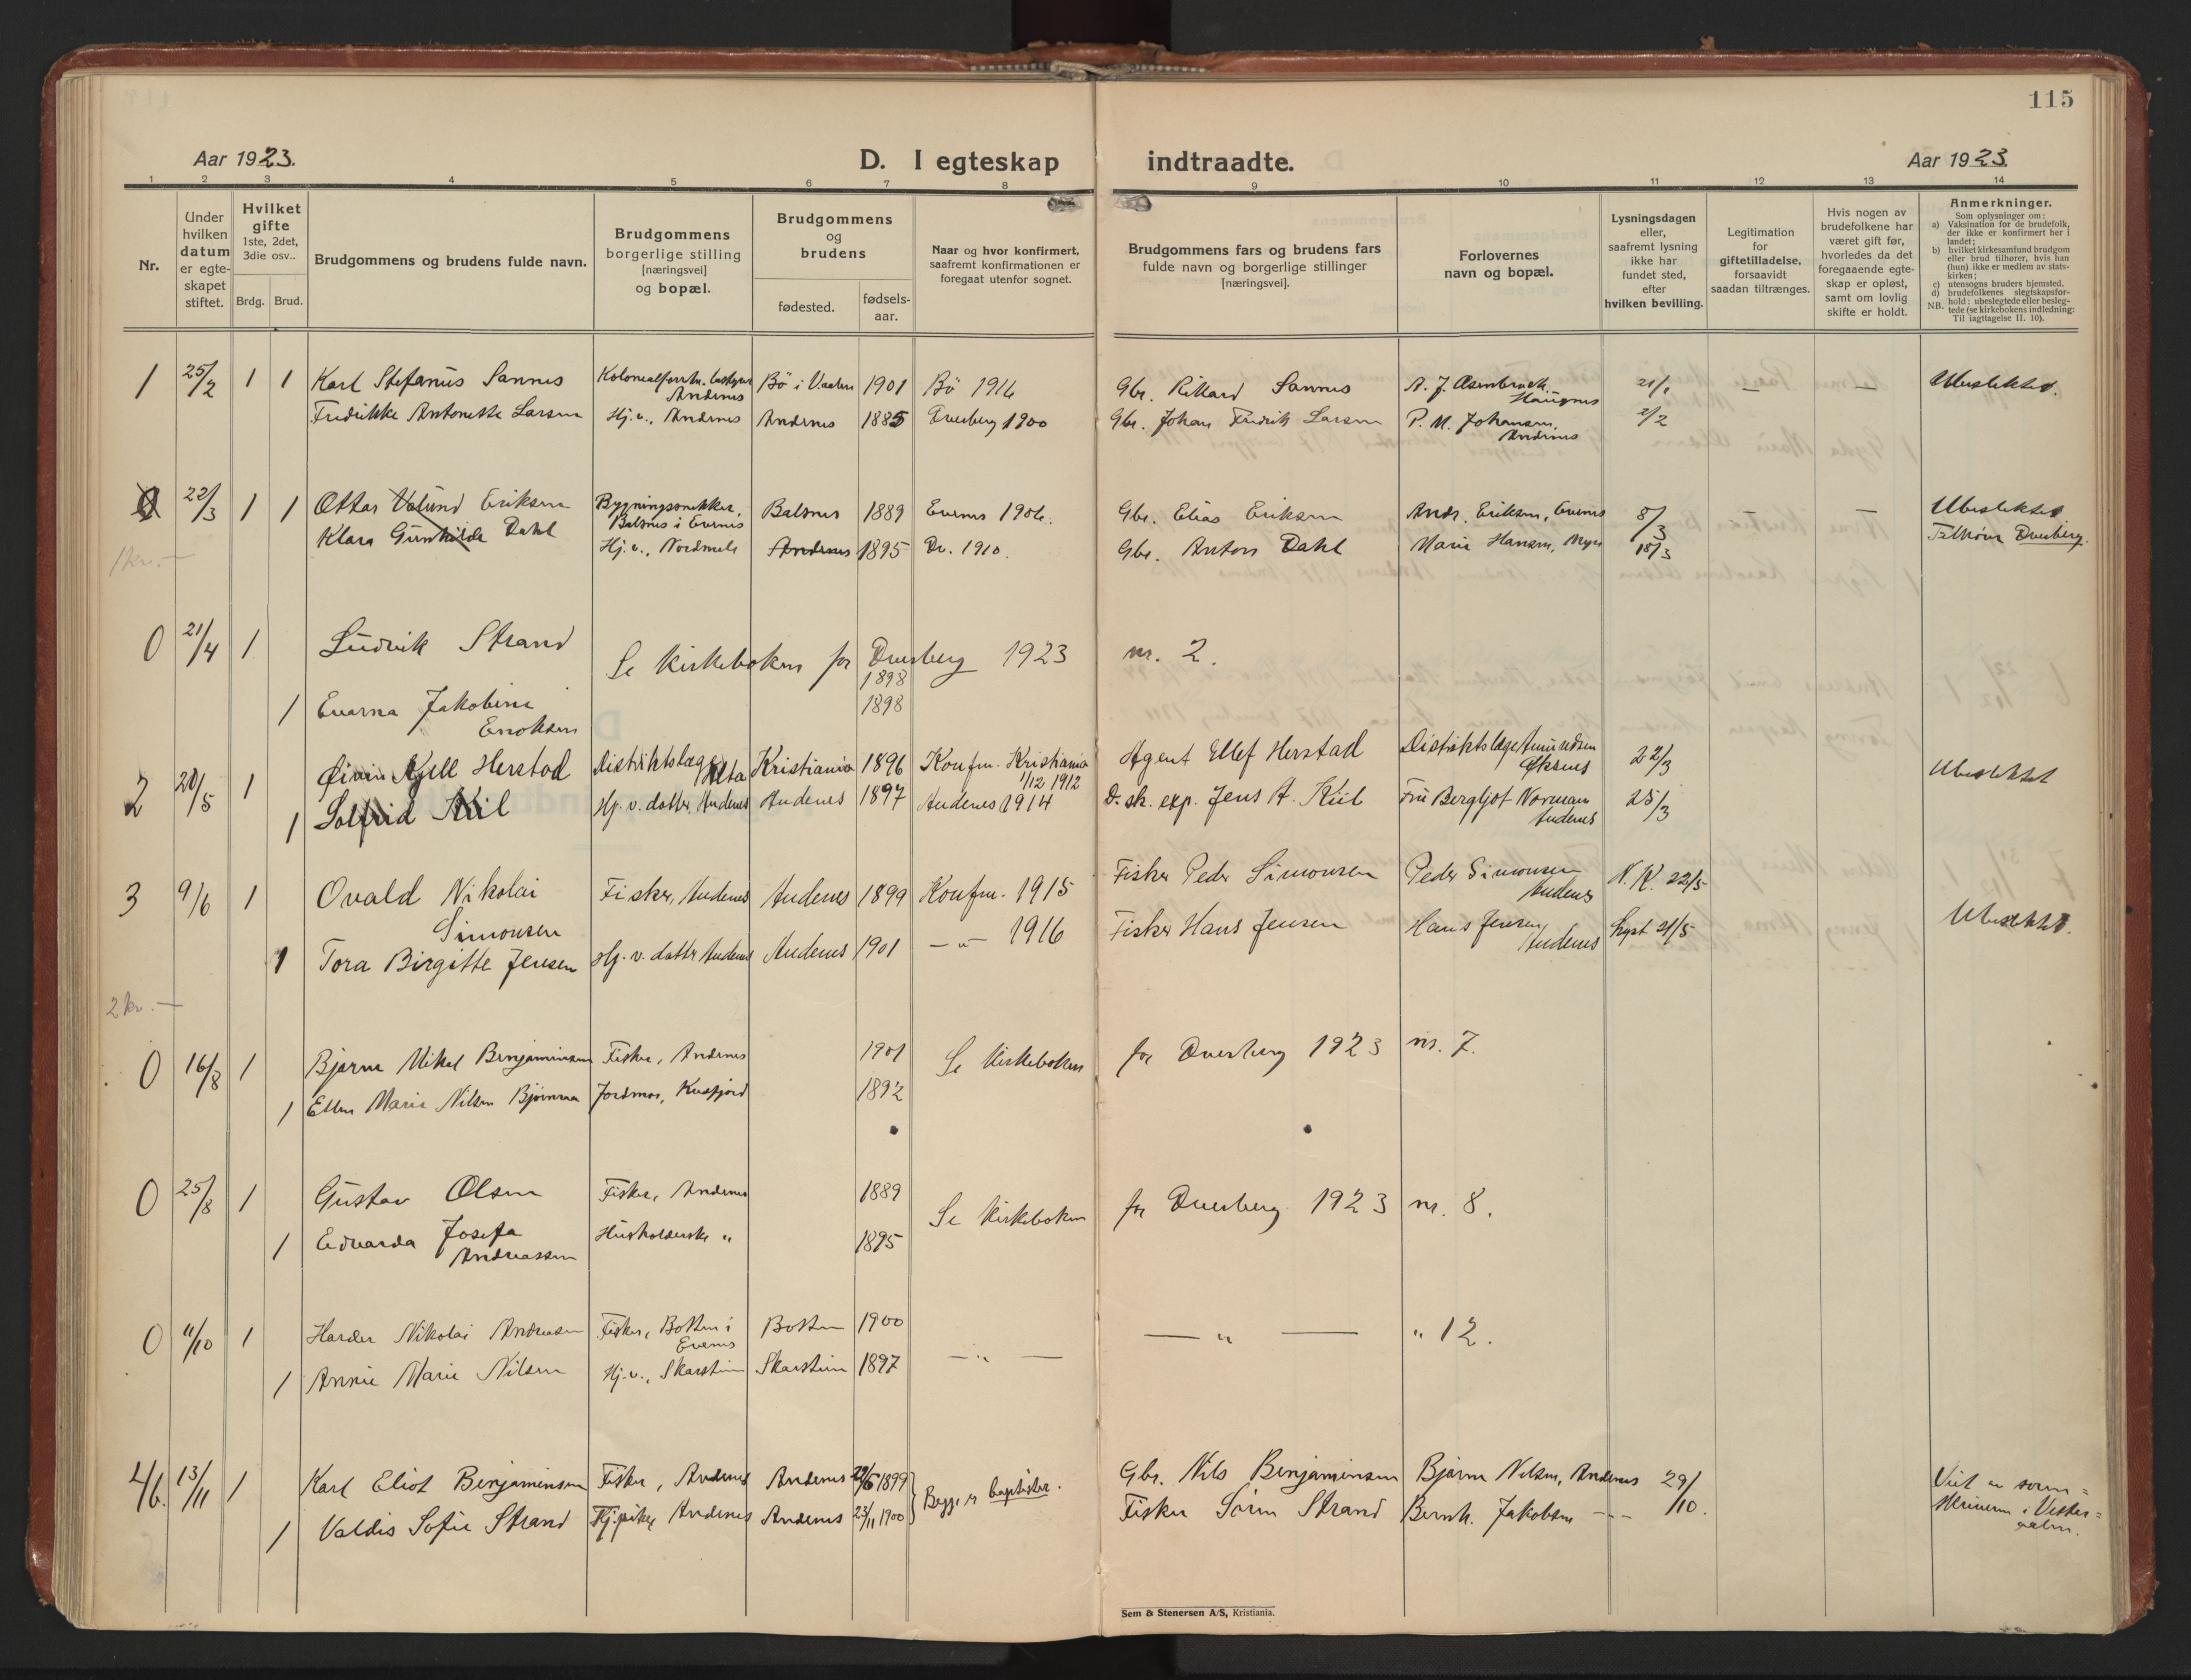 115
Aar 1923.
D. I egteskap indtraadte.
Aar 1923.
1 2 3 4 5 6 7 8 9 10 11 12 13 14
Nr.
Under hvilken datum er egteskapet stiftet.
Hvilket gifte 1ste, 2det, 3die osv..
Brdg. Brud.
Brudgommens og brudens fulde navn.
Brudgommens borgerlige stilling [næringsvei] og bopæl.
Brudgommens og brudens
fødested.
fødsels-aar.
Naar og hvor konfirmert, saafremt konfirmationen er foregaat utenfor sognet.
Brudgommens fars og brudens fars fulde navn og borgerlige stillinger [næringsvei].
Forlovernes navn og bopæl.
Lysningsdagen eller, saafremt lysning ikke har fundet sted, efter hvilken bevilling.
Legitimation for giftetilladelse, forsaavidt saadan tiltrænges.
Hvis nogen av brudefolkene har været gift før, hvorledes da det foregaaende egteskap er opløst, samt om lovlig skifte er holdt.
Anmerkninger.
Som oplysninger om:
a) Vaksination for de brudefolk, der ikke er konfirmert her i landet;
b) hvilket kirkesamfund brudgom eller brud tilhører, hvis han (hun) ikke er medlem av statskirken;
c) utensogns bruders hjemsted.
d) brudefolkenes slegtskapsforhold: ubeslegtede eller beslegtede (se kirkebokens indledning: Til iagttagelse II. 10).
NB.
1 25/2 1 1 Karl Stefanus Sannes Andenes Bö i Vaalen 1901 Bö 1916 Gbr. Rikard Sannes A. J. Haugnes 21/1 — — Ubeslektet.
Fredrikke Antonette Larsen Hj.v., Andenes Andenes 1885 Dverberg 1900 Gbr. Johan Fredrik Larsen P. M. Johansen, Andenes 2/2
22/3 1 1 Ottar Eriksen Bygningssnekker, Balsnes i Evenes Balsnes 1889 Evenes 1904. Gbr. Elias Eriksen Andr. Eriksen, Evenes 8/3 — Ubeslektet
Klara Gunhilde Dahl Hj.v., Nordmela Andenes 1895 Dv. 1910. Gbr. Anton Dahl Marie Hansen, 18/3 Tilhører Dverberg.
1 kr. —
0 21/4 1 Ludvik Strand Se kirkeboken for Dverberg 1923 nr. 2.
1898
1 Evarna Jakobine Enoksen 1898
2 20/5 1 Øivin Kjell Herstad Distriktslæge Alta Kristiania 1896 Konfm. Kristiania 1/12 1912 Agent Ellef Herstad Distriktslæge Amundsen Øksnes 22/3 Ubeslektet
1 Solfrid Kiil Hj. v. datter, Andenes Andenes 1897 Andenes 1914 D. sk. exp. Jens A. Kiil Fru Bergljot Norman Andenes 25/3
3 9/6 1 Ovald Nikolai Simonsen Fisker, Andenes Andenes 1899 Konfm. 1915 Fisker Peder Simonsen Peder Simonsen Andenes N. K. 22/5
1 Tora Birgitte Jensen Hj. v. datter Andenes Andenes 1901 — " — 1916 Fisker Hans Jensen Hans Jensen Andenes Lyst 21/5 Ubeslektet.
2 kr. —
0 16/8 1 Bjarne Mikal Benjaminsen Fisker, Andenes 1901 Se kirkeboken for Dverberg 1923 nr. 7.
1 Ellen Marie Nilsen Jordmor, 1892
0 25/8 1 Gustav Olsen Fisker, Andenes 1889 Se kirkeboken for Dverberg 1923 nr. 8.
1 Edvarda Josefa Andreassen Husholderske " 1895
0 11/10 1 Harder Nikolai Andreasen Fisker, Botten i Evenes Botten 1900 — " — — " — " 12.
1 Annie Marie Nilsen Hj.v., Skarstein Skarstein 1897
4 b. 13/11 1 Karl Eliot Benjaminsen Fisker, Andenes Andenes 1899 Begge er baptister. Gbr. Nils Benjaminsen Bjarne Nilsen, Andenes 29/10. Viet av sorenskriveren i Vesteraalen.
1 Valdis Sofie Strand Andenes Andenes 23/11 1900 Fisker Sørn Strand Bernh. Jakobsen — " —
Sem & Stenersen A/S, Kristiania.